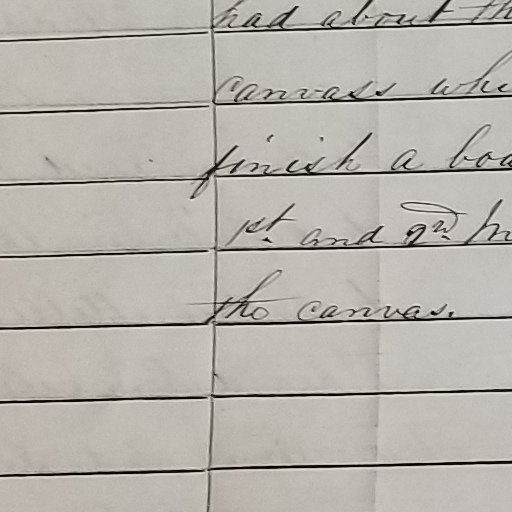 had about th
canvass whe
finish a boa
1st. and 2nd. M
the canvas.